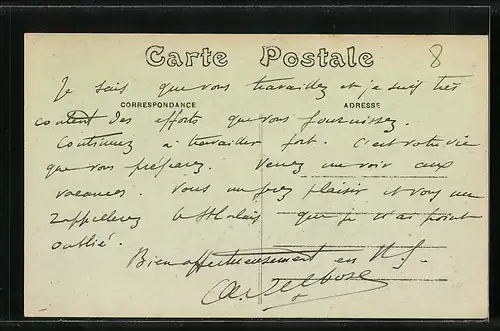 8
Carte Postale
Je sais que vous travaillez et je suis très
CORRESPONDANCE ADRESSE
content des efforts que vous fournissez.
Continuez à travailler fort. C'est votre vie
que vous préparez. Venez me voir aux
vacances. Vous me ferez plaisir et vous me
rappellerez que je n'ai point
oublié.
Bien affectueusement en N.S.